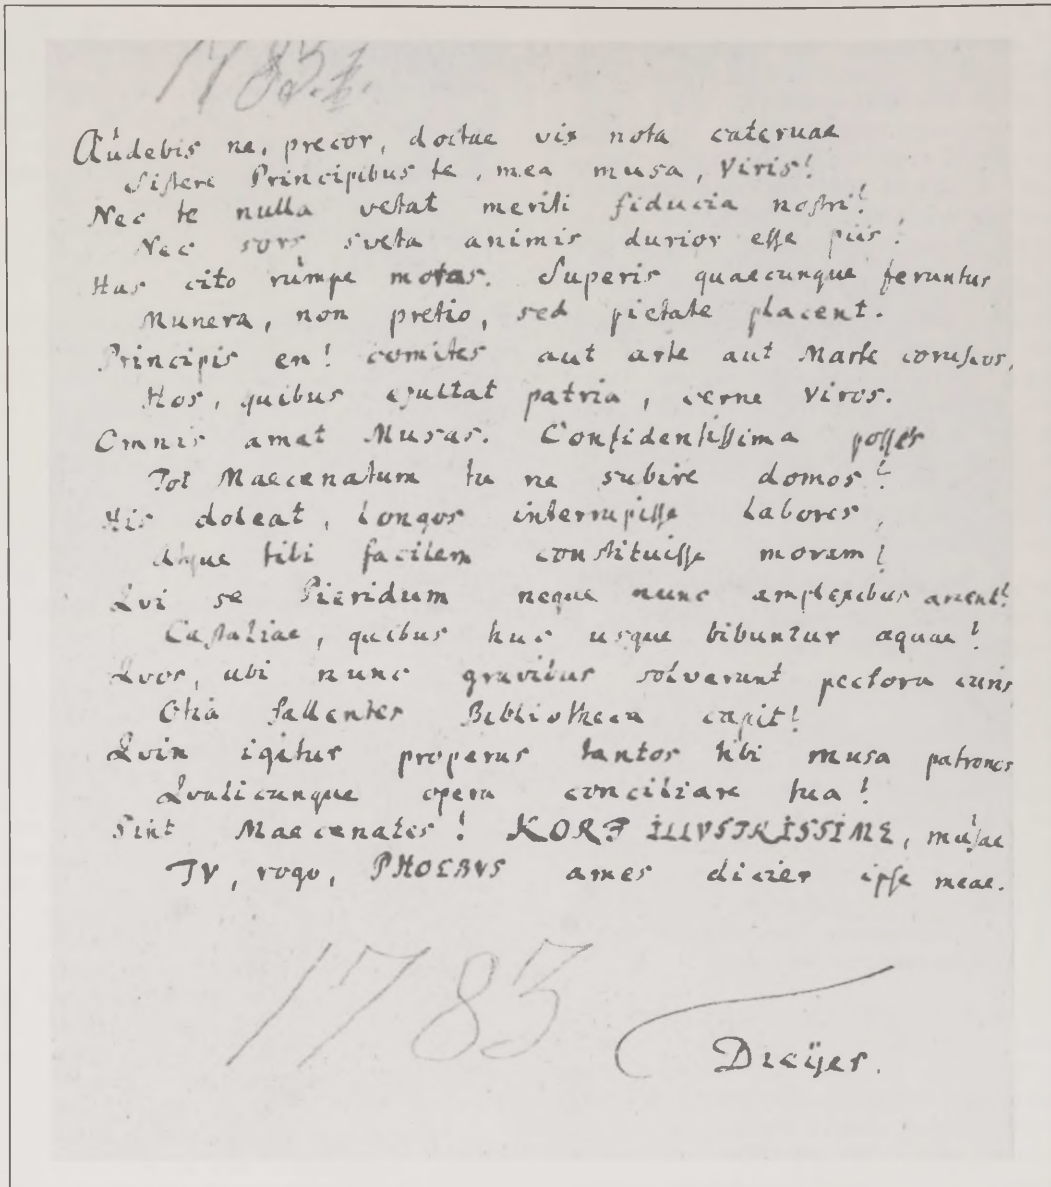 1783.
Audebis ne, precor, doctae vix nota cateruae
Sistere Principibus te, mea musa, Viris!
Nec te nulla vetat meriti fiducia nostri!
Nec sors sveta animis durior esse piis!
Has cito rumpe moras. Superis quaecunque feruntur
Munera, non pretio, sed pietate placent.
Principis en! comites aut arte aut Marte coruscos,
Hos, quibus exultat patria, cerne Viros.
Omnis amat Musas. Confidentissima posses
Tot Maecenatum tu ne subire domos!
His doleat, longos interrupisse labores,
Atque tibi facilem constituisse moram!
Qui se Pieridum neque nunc amplexibus arcent!
Castaliae, quibus huc usque bibuntur aquae!
Quos, ubi nunc gravibus solverunt pectora curis
Otia fallentes Bibliotheca capit!
Quin igitur properas tantos tibi musa patronos
Qualicunque opera conciliare tua!
Sint Maecenates! KORF ILLVSTRISSIME, musae
TV, rogo, PHOEBVS ames dicier ipse meae.
1783
Dreÿer.